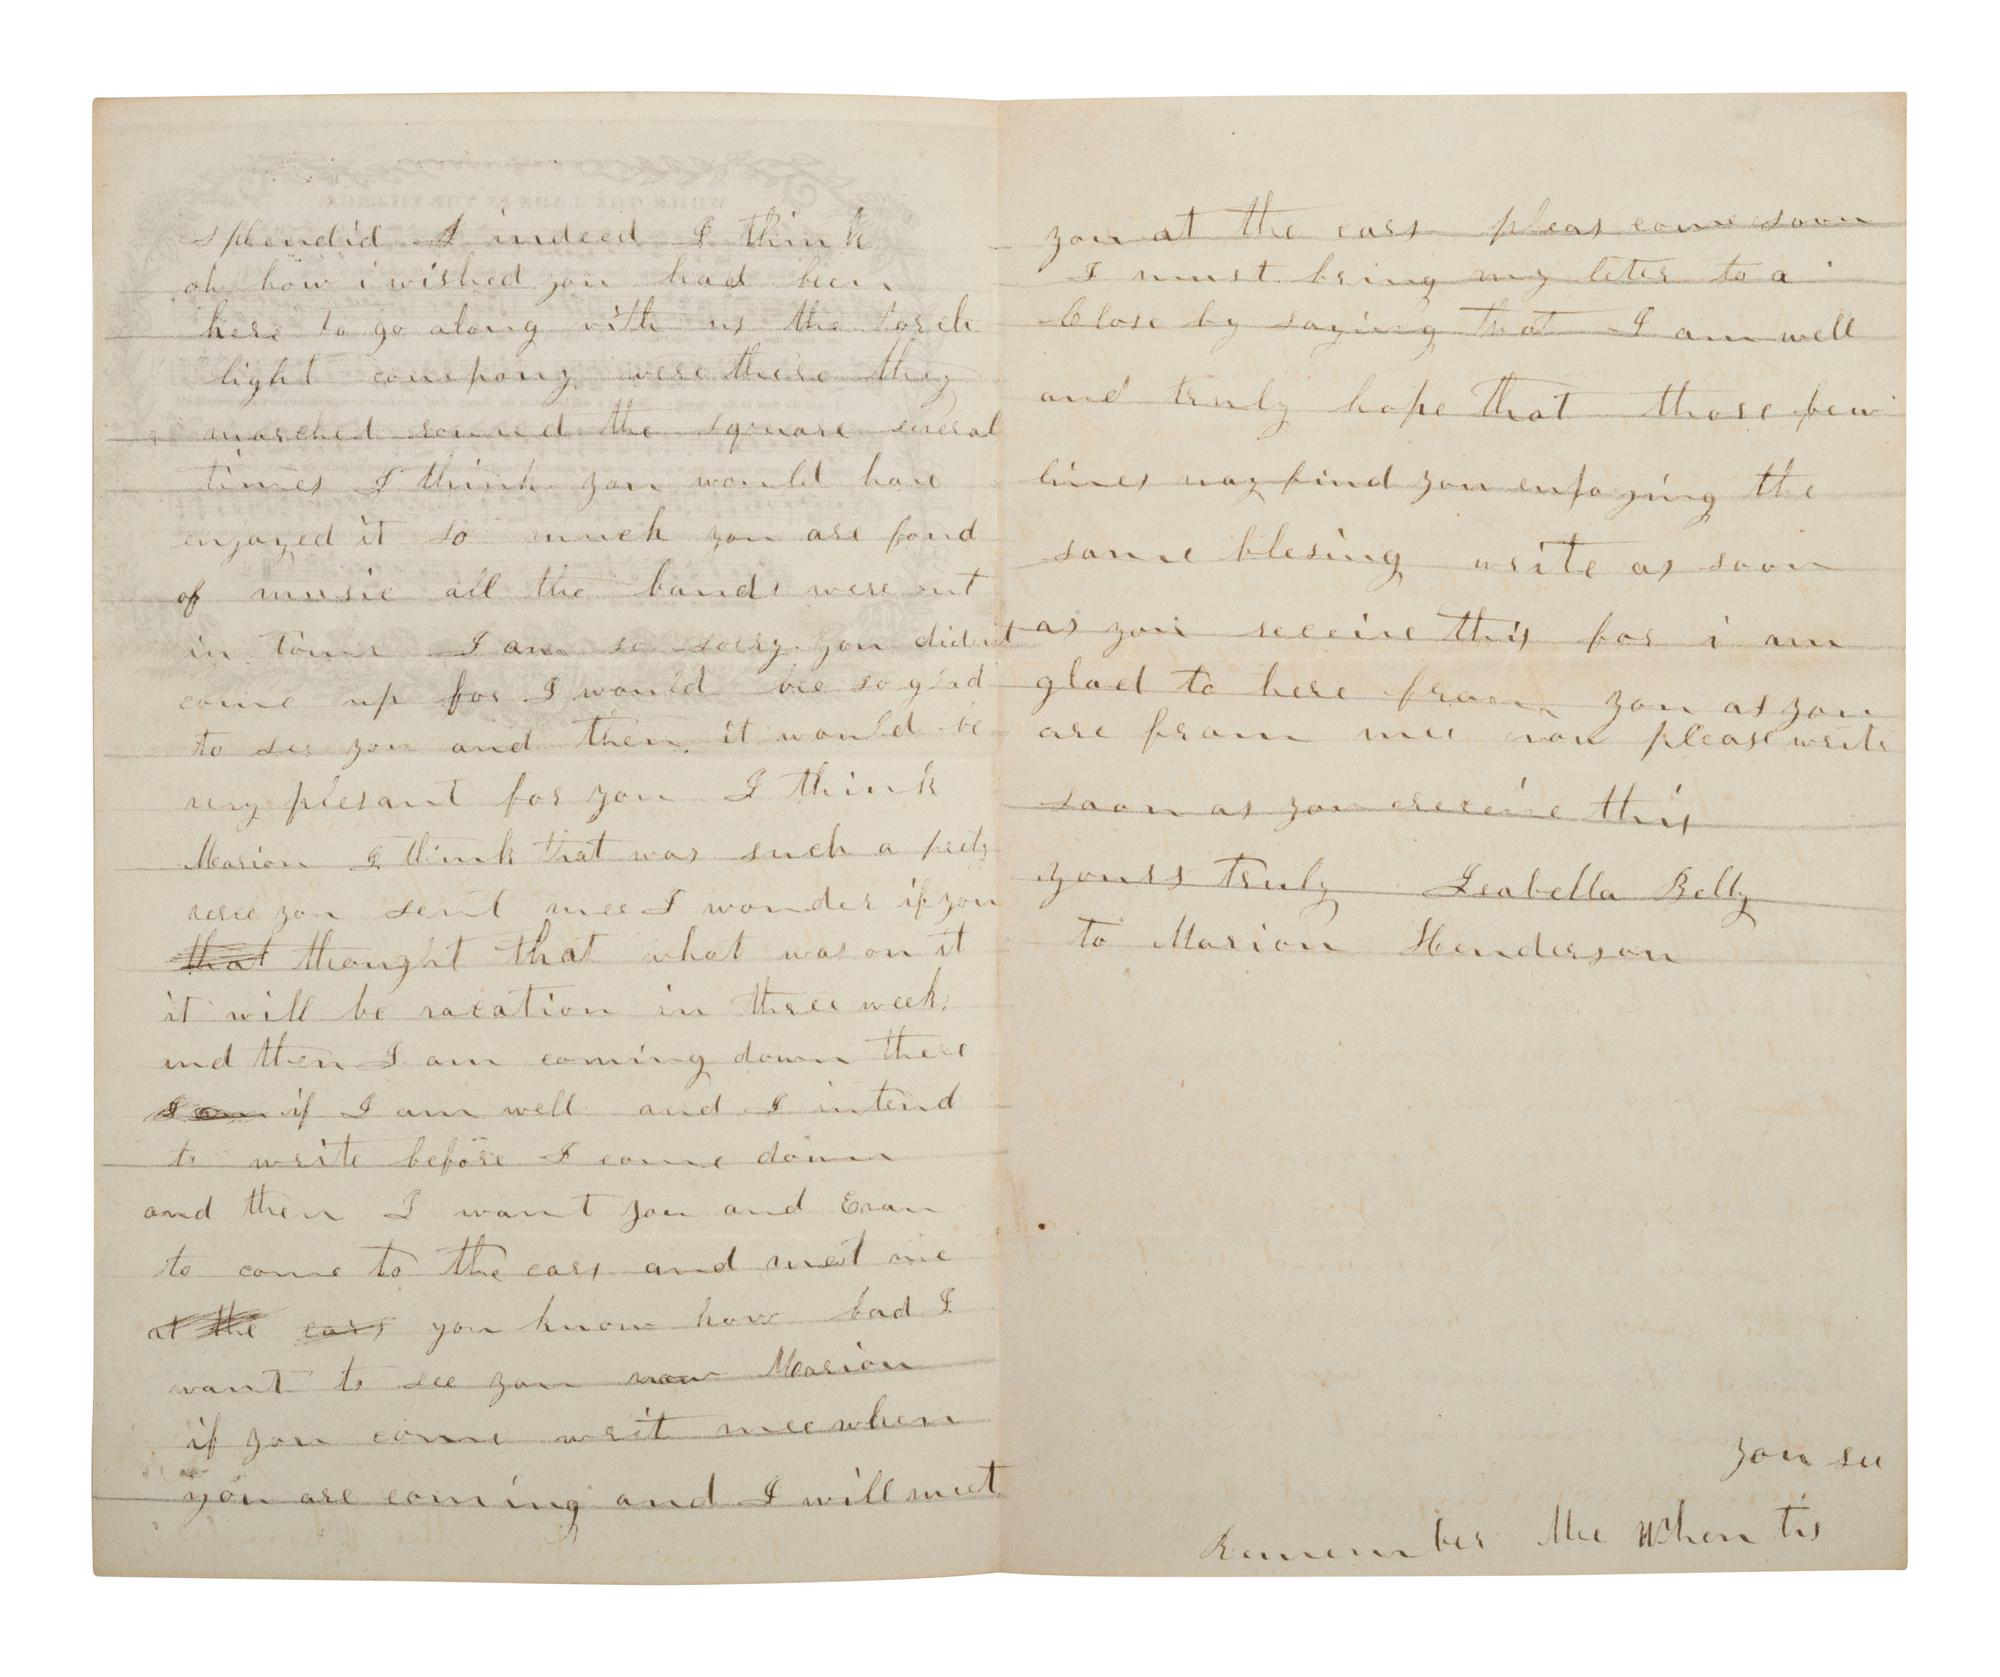 splendid I indeed I think
oh how i wished you had been
here to go along with us the torch
light company were there they
marched round the square several
times I think you would have
enjoyed it so much you are fond
of music all the bands were out
in town I am so sorry you didnt
come up for I would bee so glad
to see you and then it would be
very plesant for you I think
Marion I think that was such a prity
verce you sent mee I wonder if you
that thought that what was on it
it will be vacation in three week
and then I am coming down there
I am if I am well and I intend
to write before I come down
and then I want you and Evan
to come to the cars and meet me
at the cars you know how bad I
want to see you now Marion
if you come writ mee when
you are coming and I will meet
you at the cars pleas come soon
I must bring my leter to a
Close by saying that I am well
and truly hope that those few
lines may find you enjoying the
same blesing write as soon
as you receive this for i am
glad to here from you as you
are from mee now please write
soon as you receive this
yours truly Isabella Belly
to Marion Henderson
you see
Remember Me When tis